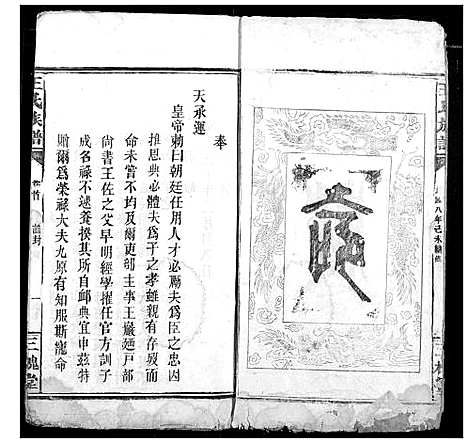 王氏族譜
八年己未
奉
天承運
皇帝勅曰朝廷任用人才必勵夫為臣之忠因
推恩典必體夫為子之孝雖親有存歿而
命未嘗不均及爾吏部主事王嚴廼戶部
尚書王佐之父早明經擢任官方訓子
成名祿不逮養揆其所自卹典宜申茲特
贈爾為榮祿大夫九原有知服斯寵命
王氏族譜
卷首
誥封
一
三槐堂